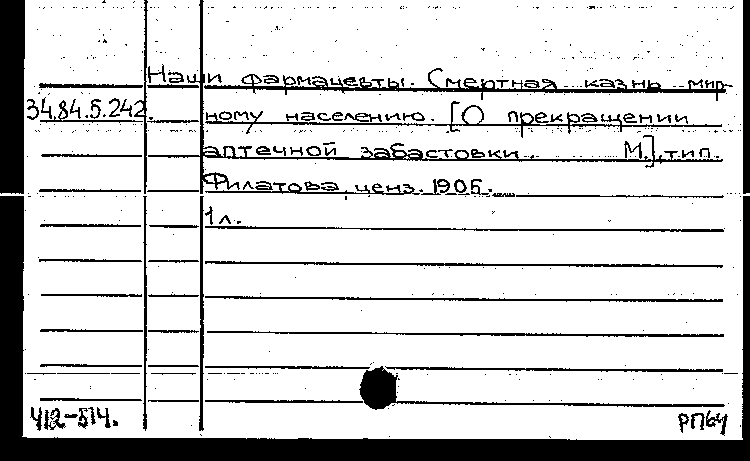 Наши фармацевты. Смертная казнь мир-
34.84.5.242. ному населению. [О прекращении
аптечной забастовки. М.], тип.
Филатова, ценз. 1905.
1 л.
412-514. РП64